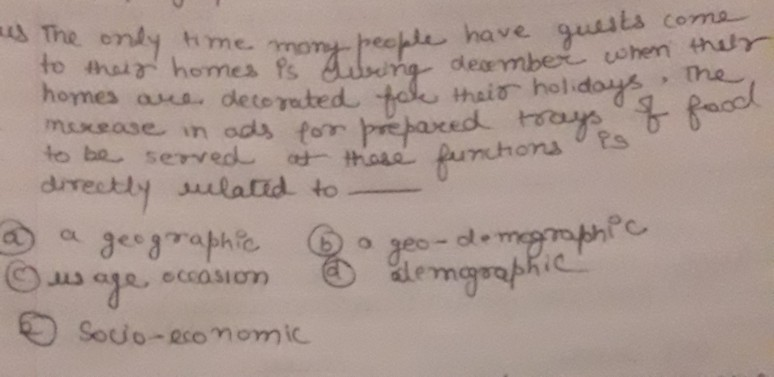 The only time many people have guests come
to their homes is during december when their
homes are decorated for their holidays. The
increase in ads for prepared trays of food
to be served at these functions is
directly related to ___
(a) a geographic (b) a geo-demographic
(c) usage occasion (d) demographic
(e) Socio-economic